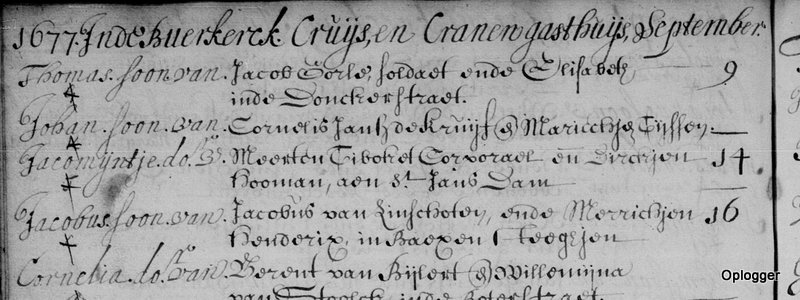 1677. Inde Buerkerck Cruijs, en Cranen gasthuijs, September.
Thomas. soon. van. Jacob Sorle, soldaet ende Elisabeth 9
inde Donckerstraet.
Johan. soon. van. Cornelis Jantz de Kruijf & Maricchje Tijssen.
Jacomijntje. do. v. Meerten Cibokel Corporael en Dirckjen 14
Hooman, aen St. Jans Dam
Jacobus. soon. van. Jacobus van Linschoten, ende Merrichjen 16
Henderix, in Baexen steegjen
Cornelia. do. van Berent van Bijlert & Willemijna
van inde straet.
Oplogger